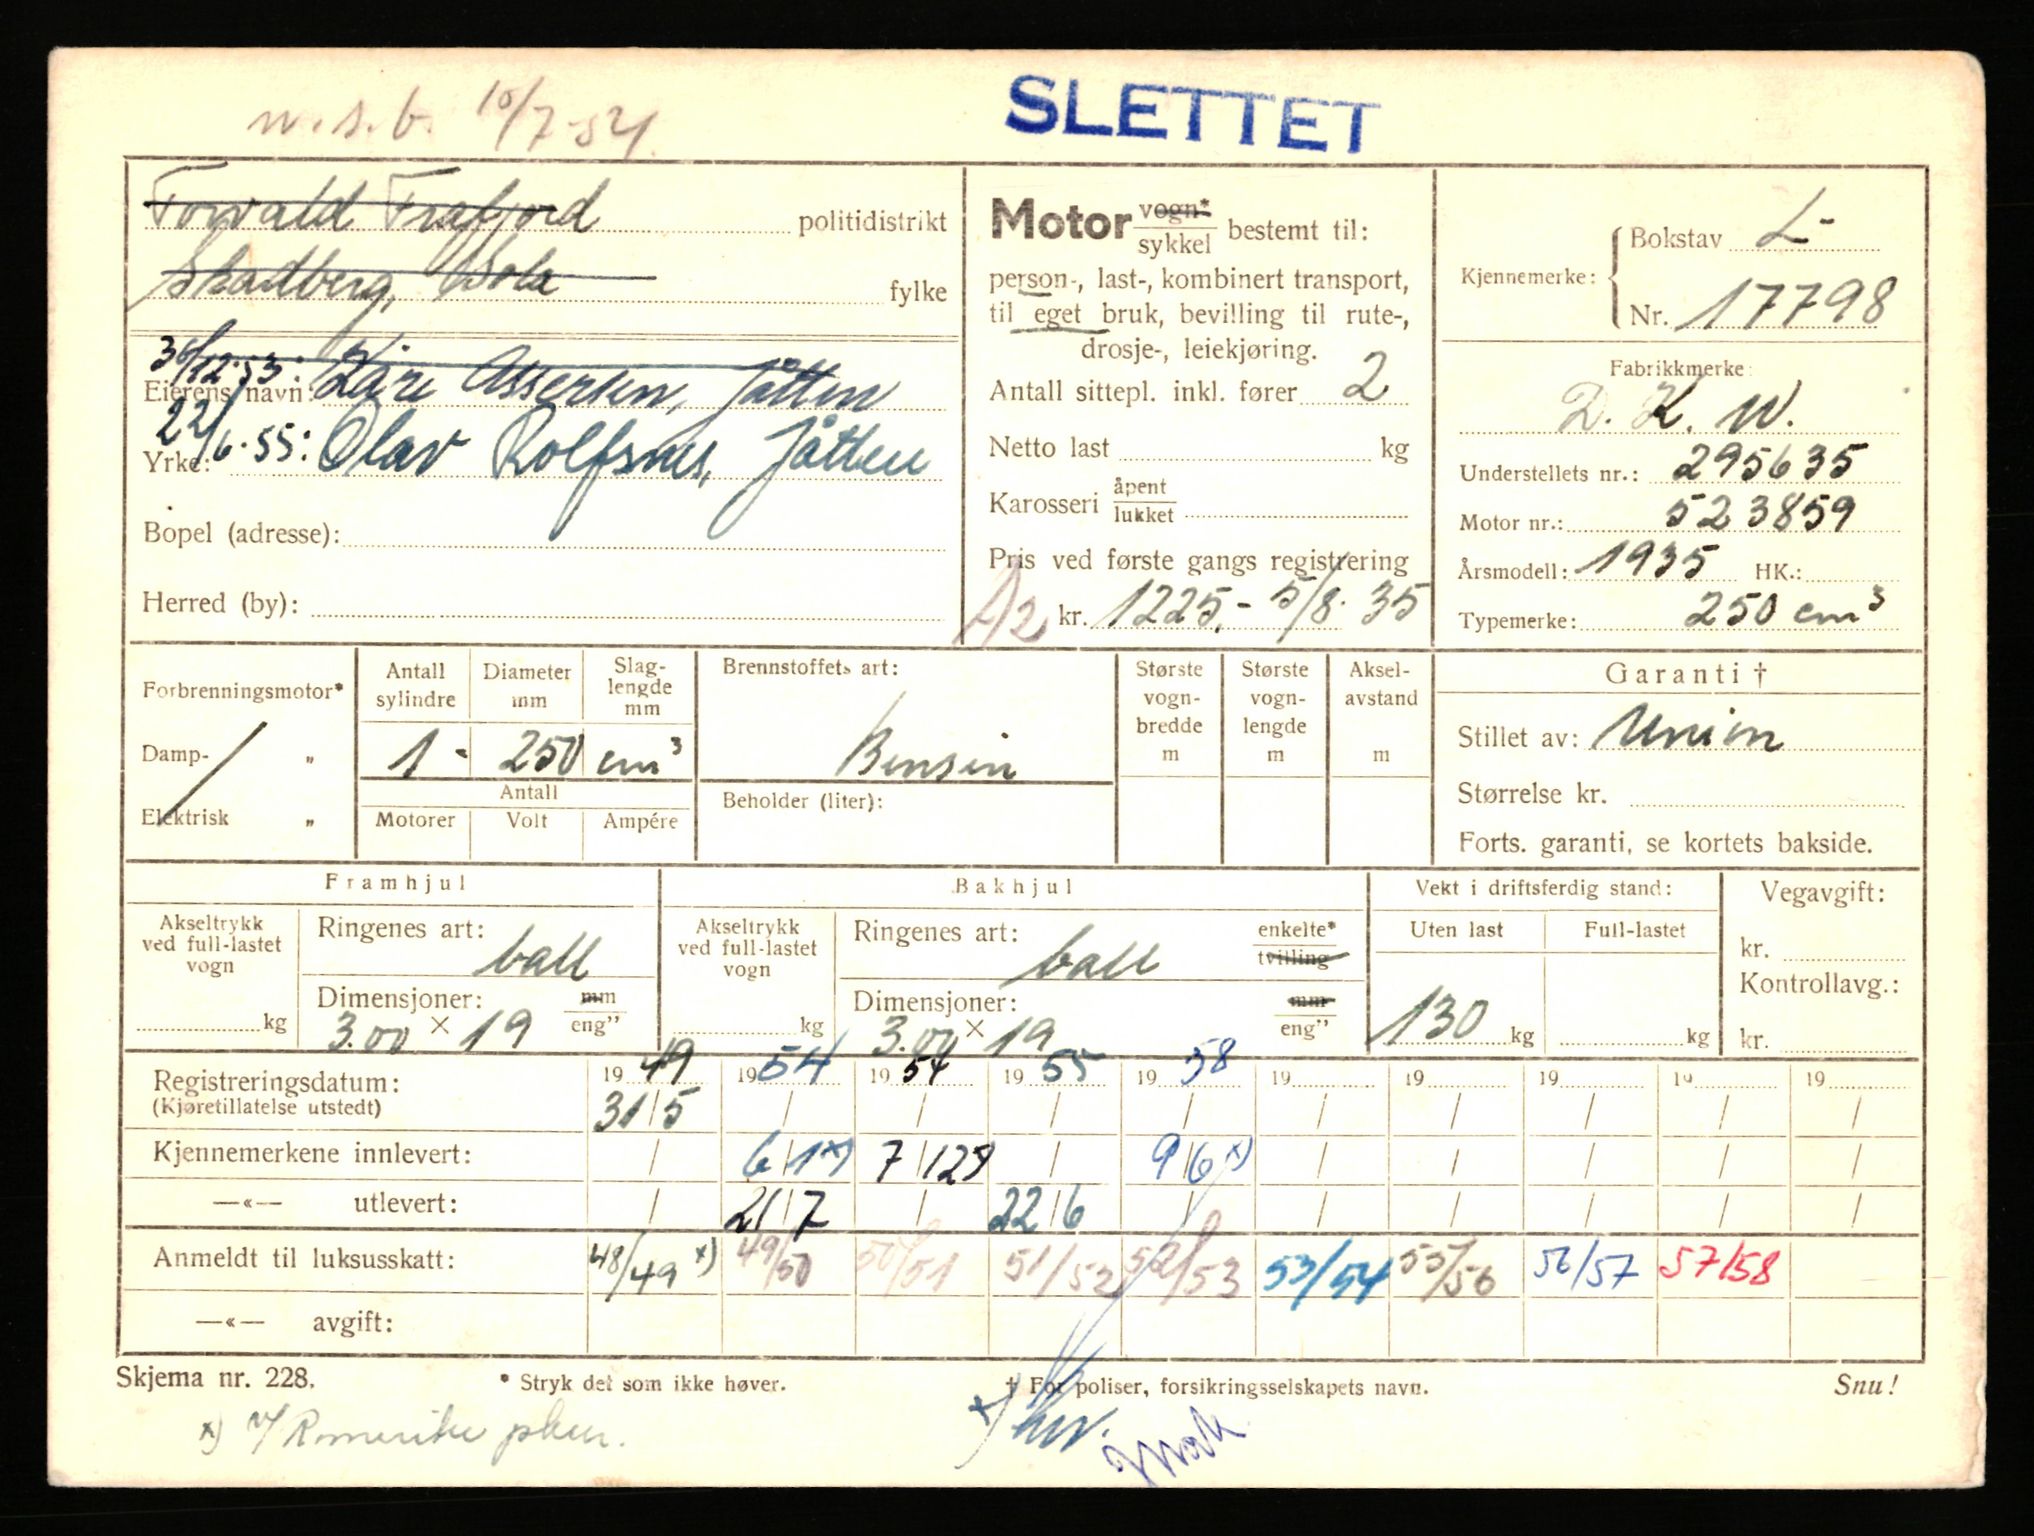 m.s.b. 10/7-54.
SLETTET
Torvald Frafjord politidistrikt
Skadberg, Sola fylke
30/12-53: Kåre Assersen, Jåtten
Eierens navn:
22/6-55: Olav Rolfsnes, Jåtten
Yrke:
Bopel (adresse):
Herred (by):
Motor vogn* / sykkel bestemt til:
person-, last-, kombinert transport,
til eget bruk, bevilling til rute-,
drosje-, leiekjøring.
Antall sittepl. inkl. fører 2
Netto last kg
Karosseri åpent / lukket
Pris ved første gangs registrering
A2 kr. 1225,- 5/8-35
Kjennemerke: Bokstav L-
Nr. 17798
Fabrikkmerke:
D. K. W.
Understellets nr.: 295635
Motor nr.: 523859
Årsmodell: 1935 HK.:
Typemerke: 250 cm³
Forbrenningsmotor*
Damp- "
Elektrisk "
Antall sylindre Diameter mm Slaglengde mm
1 - 250 cm³
Antall
Motorer Volt Ampére
Brennstoffets art:
Bensin
Beholder (liter):
Største vognbredde m
Største vognlengde m
Akselavstand m
Garanti †
Stillet av: Union
Størrelse kr.
Forts. garanti, se kortets bakside.
Framhjul
Akseltrykk ved full-lastet vogn kg
Ringenes art: ball
Dimensjoner: mm / eng"
3.00 × 19
Bakhjul
Akseltrykk ved full-lastet vogn kg
Ringenes art: ball enkelte* / tvilling
Dimensjoner: mm / eng"
3.00 × 19
Vekt i driftsferdig stand:
Uten last Full-lastet
130 kg kg
Vegavgift:
kr.
Kontrollavg.:
kr.
Registreringsdatum: 1949 1954 1954 1955 1958 19 19 19 19 19
(Kjøretillatelse utstedt) 31/5 / / / / / / / / /
Kjennemerkene innlevert: / 6/1 x) 7/12 54 / 9/6 x) / / / / /
—«— utlevert: / 21/7 / 22/6 / / / / / /
Anmeldt til luksusskatt: 48/49 x) 49/50 50/51 51/52 52/53 53/54 55/56 56/57 57/58
—«— avgift:
Skjema nr. 228.
* Stryk det som ikke høver.
† For poliser, forsikringsselskapets navn.
Snu!
x) v/Romerike pkm.
x)